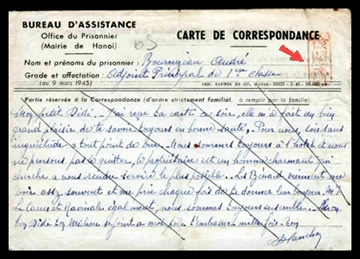 BUREAU D'ASSISTANCE
Office du Prisonnier
(Mairie de Hanoi)
CARTE DE CORRESPONDANCE
Nom et prénoms du prisonnier : Bourrigeau André
Grade et affectation : Adjoint Principal de 1ère classe
(au 9 mars 1945)
Partie réservée à la Correspondance (d'ordre strictement familial, à remplir par la famille).
Cher petit Dédé, J'ai reçu ta carte ce soir, elle m'a fait un bien
grand plaisir de te savoir toujours en bonne santé. Pour nous sois sans
inquiétude à tout point de vue. Nous sommes toujours à l'hôtel et nous
ne pensons pas le quitter, le propriétaire est un homme charmant qui
cherche à nous rendre service le plus possible. Les Binard viennent me
voir assez souvent et me prie chaque fois de te donner leur bonjour. M. J.
Le Camus et Ravinale également, nous sommes toujours ensemble.
se joint à moi pour t'embrasser mille fois. Ton
Blanche